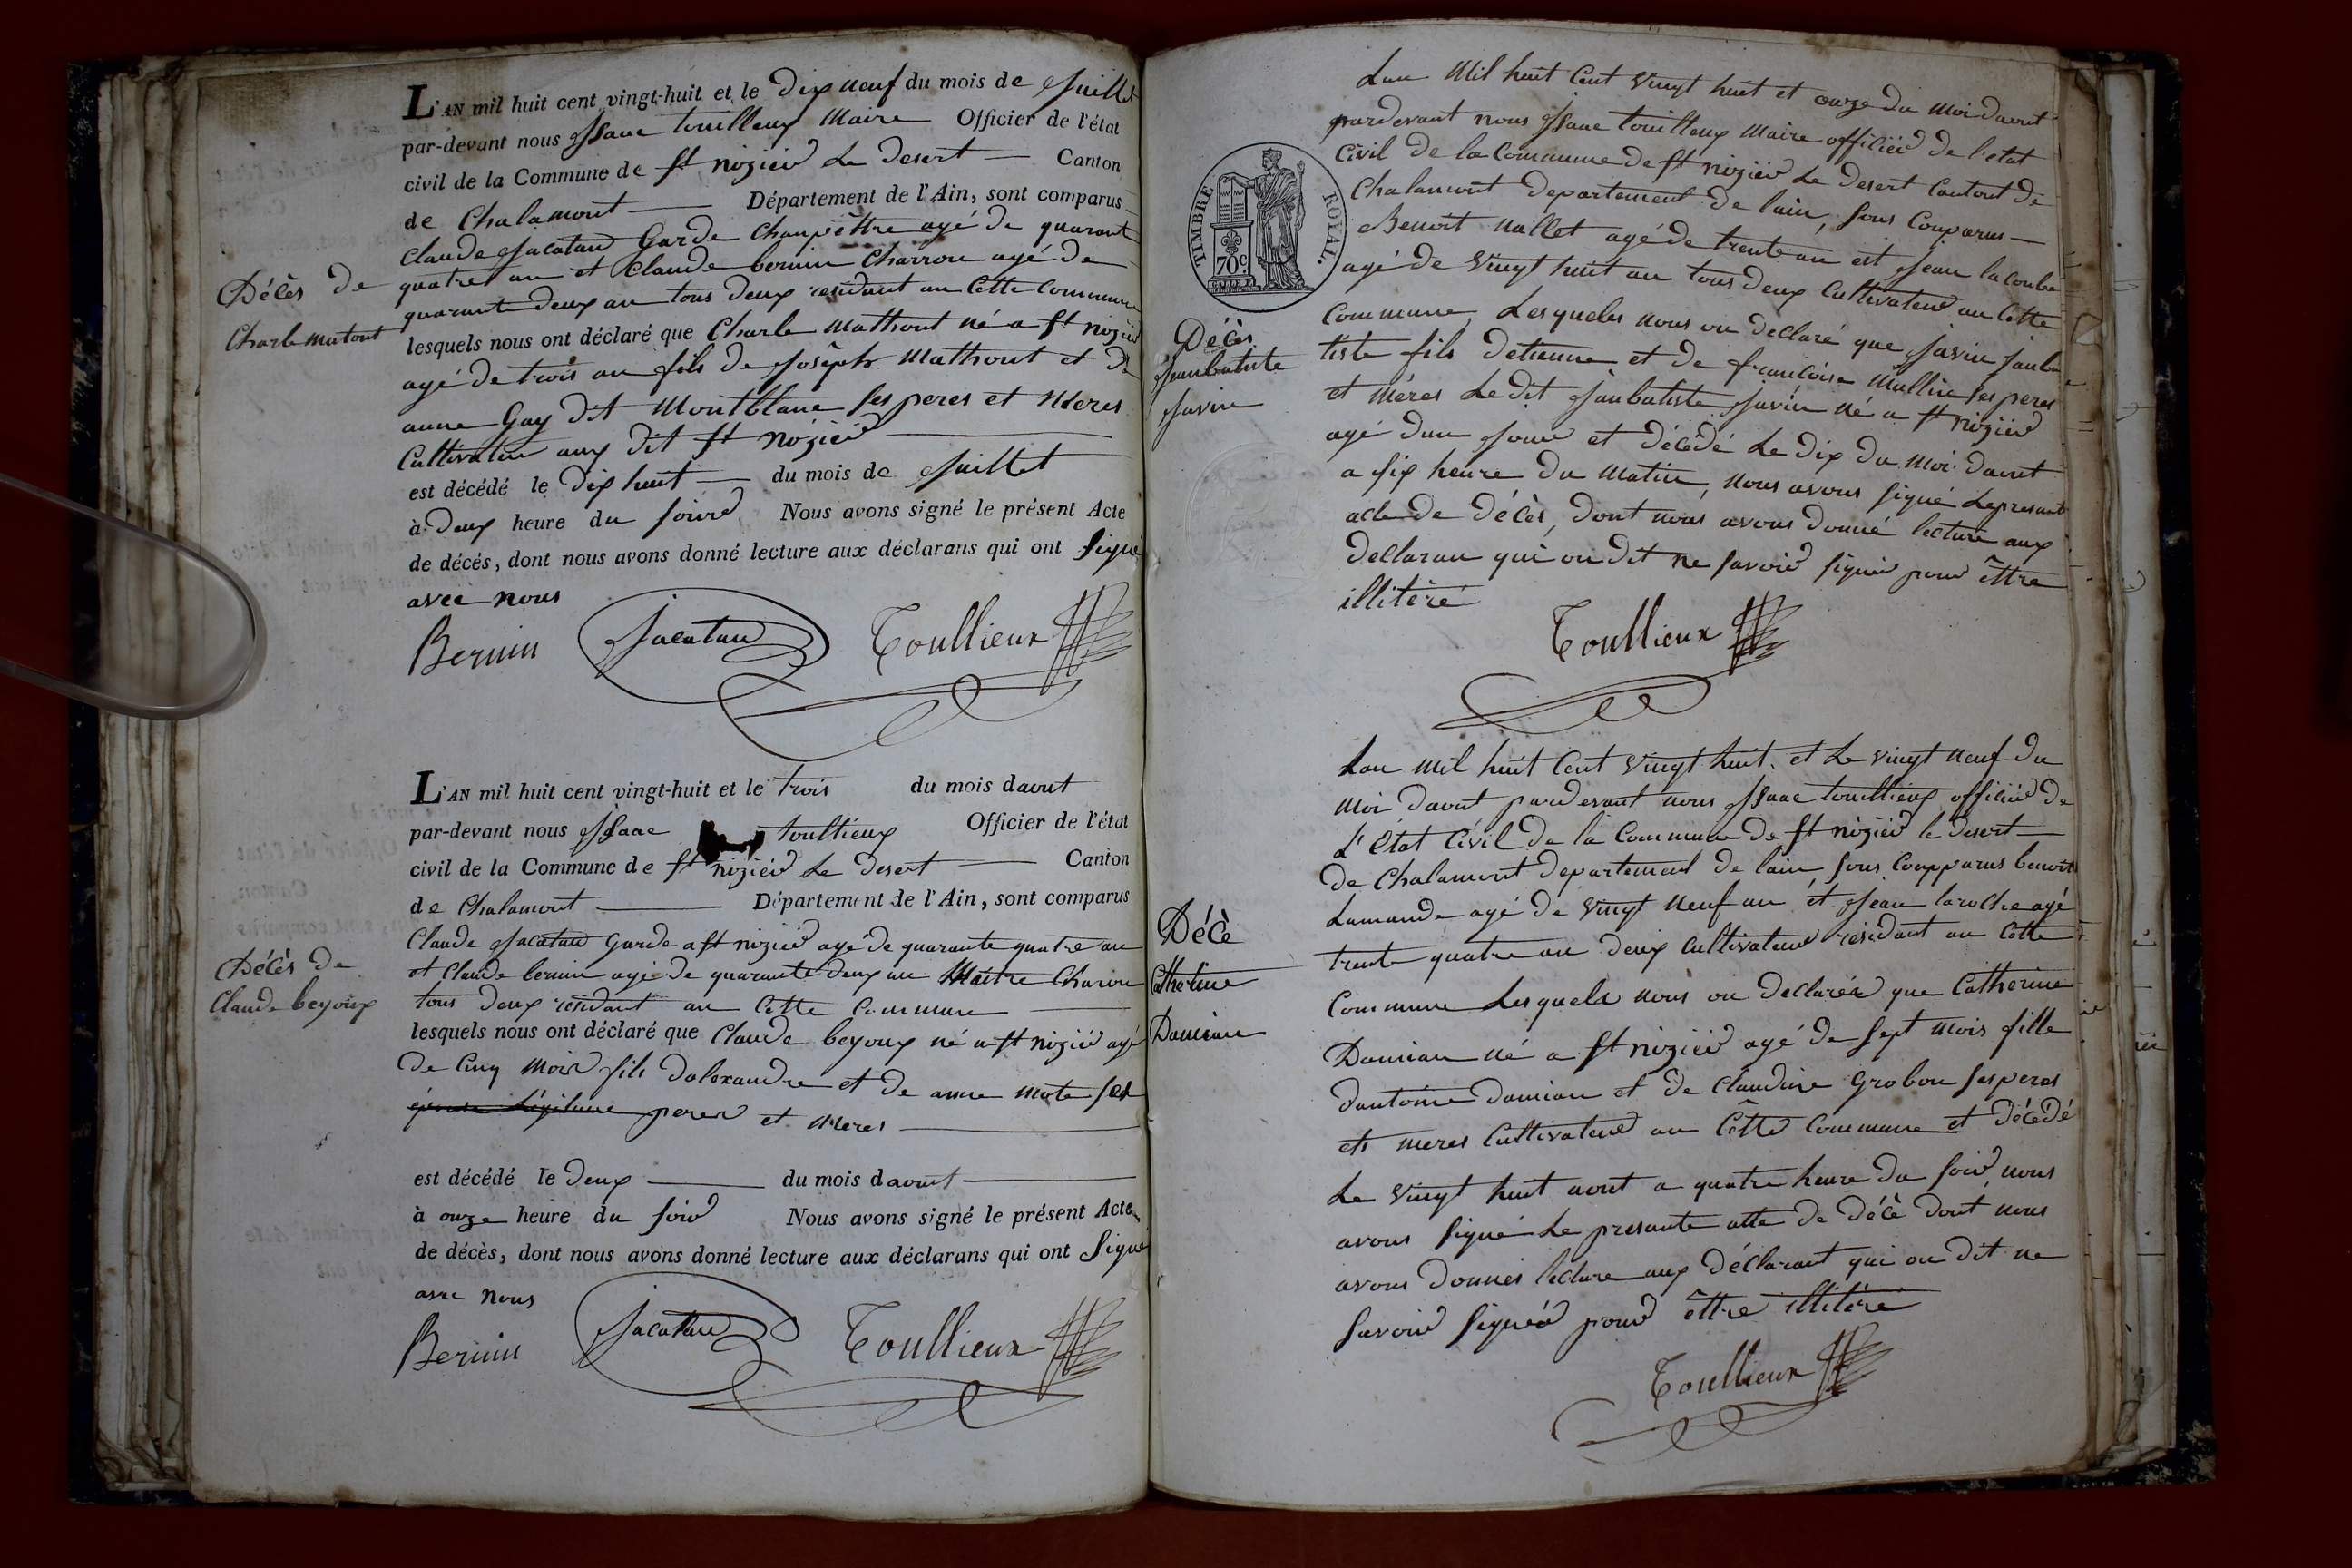 L'AN mil huit cent vingt-huit et le Dix neuf du mois de Juillet
par-devant nous Isaac touilleux Maire Officier de l'état
civil de la Commune de st nizier Le Desert Canton
de Chalamont Département de l'Ain, sont comparus
Claude Jacatau Garde Champêttre agé de quarant
quatre an et Claude bernin Charron agé de
quarante deux an tous deux residant an Cette Commune
Décès de
Charle matout
lesquels nous ont déclaré que Charle Mathout né a st nizier
agé de trois an fils de Joseph Mathout et de
anne Gay dit Montblanc ses peres et Meres
Cultivateur aux dit st nizier
est décédé le dix huit du mois de Juillet
à Deux heure du soire Nous avons signé le présent Acte
de décés, dont nous avons donné lecture aux déclarans qui ont signé
avec nous
Bernin Jacatau Toullieux
L'AN mil huit cent vingt-huit et le trois du mois daout
par-devant nous Isaac toullieux Officier de l'état
civil de la Commune de st nizier Le Desert Canton
de Chalamont Département de l'Ain, sont comparus
Claude Jacatau Garde a st nizier agé de quarante quatre an
et Claude bernin agé de quarante deux an Maitre Charon
tous deux résidant an Cette Commune
Décès de
Claude beyoux
lesquels nous ont déclaré que Claude beyoux né a st nizier agé
de Cinq Mois fils dalexandre et de anne Mate ses
épouse Légitime peres et Meres
est décédé le Deux du mois daout
à onze heure du soir Nous avons signé le présent Acte
de décès, dont nous avons donné lecture aux déclarans qui ont signé
avec nous
Bernin Jacatau Toullieux
TIMBRE ROYAL.
70c.
Lan Mil huit Cent Vingt huit et onze du Moi daout
pardevant nous Isaac touilleux Maire officier de l'etat
Civil de la Commune de st nizier Le Desert Cantont de
Chalamont departement de lain, sons Comparus
Benoit Mallet agé de trente an est Jean lacombe
agé de Vingt huit an tous deux Cultivateur an Cette
Commune, Lesqueles nous on declaré que Javin Janba
Décès
Janbatiste
Javin
tiste fils detienne et de francoise Mallin ses peres
et Méres Ledit Janbatiste Javin né a st nizier
agé dun Jour et décédé Le dix du Moi daout
a six heure du Matin, nous avons signé Lepresant
acte de décès, dont nous avons donné lecture aux
declaran qui on dit ne savoir signer pour êttre
illitéré
Toullieux
Lan mil huit Cent Vingt huit et Le vingt neuf du
Moi daout pardevant nous Isaac touillieux officier de
L'état Civil de la Commune de st nizier le desert
de Chalamont departement de lain, sons Compparus benoit
Lamande agé de Vingt neuf an et Jean laroche agé
trente quatre an deux Cultivateur résidant an Cette
Décè
Catherine
Damian
Commune Lesquels nous on declarés que Catherine
Damian né a st nizier agé de sept Mois fille
dantoine damian et de Claudine Grobon ses peres
ets meres Cultivateur an Cette Commune et décédé
Le Vingt huit aout a quatre heure du soir, nous
avons signé Le presante atte de décè dont nous
avons donnés lecture aux déclarant qui on dit ne
savoir signér pour êttre illitéré
Toullieux